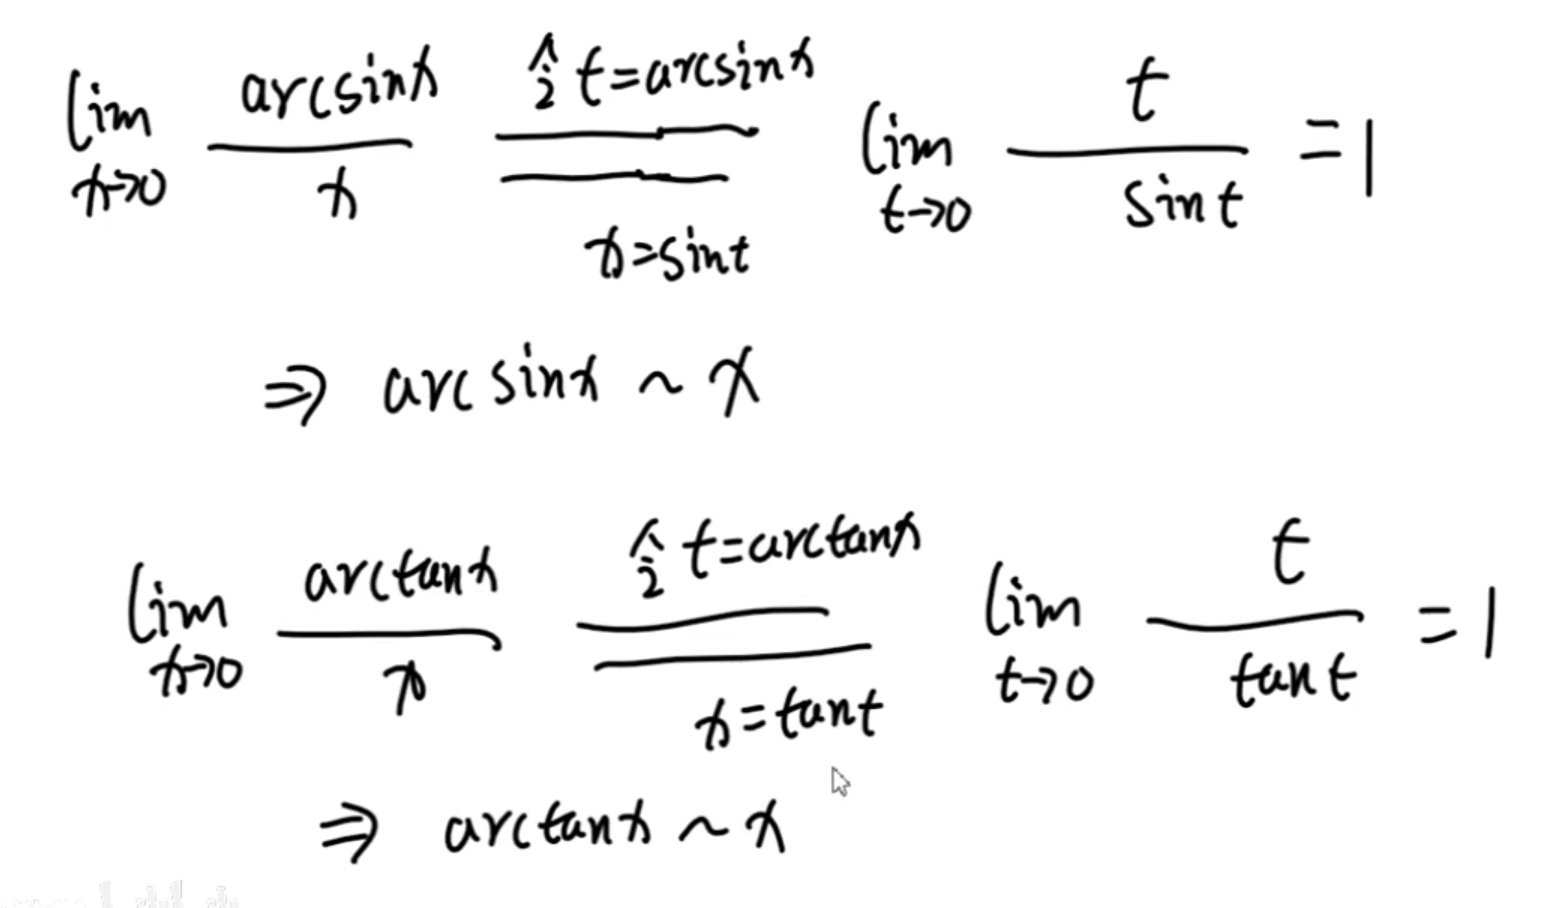 lim x→0 arcsinx / x 令 t=arcsinx x=sint lim t→0 t / sint =1
⇒ arcsinx ~ x
lim x→0 arctanx / x 令 t=arctanx x=tant lim t→0 t / tant =1
⇒ arctanx ~ x